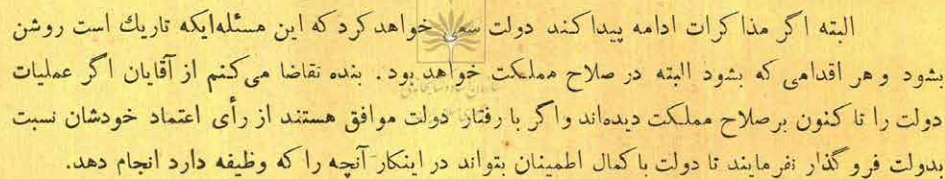 البته اگر مذاکرات ادامه پیدا کند دولت سعی خواهد کرد که این مسئله‌ایکه تاریك است روشن
بشود و هر اقدامی که بشود البته در صلاح مملکت خواهد بود . بنده تقاضا می‌کنم از آقایان اگر عملیات
دولت را تا کنون بر صلاح مملکت دیده‌اند و اگر با رفتار دولت موافق هستند از رأی اعتماد خودشان نسبت
بدولت فرو گذار نفرمایند تا دولت با کمال اطمینان بتواند در اینکار آنچه را که وظیفه دارد انجام دهد.